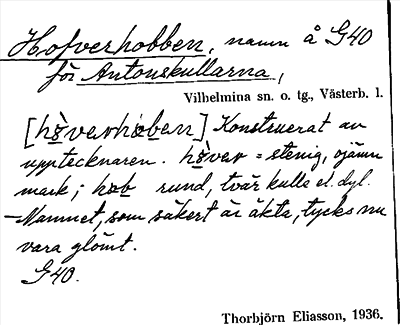 Hofverhobben, namn å G40
för Antonskullarna,
Vilhelmina sn. o. tg., Västerb. l.
[hò̤verhòben] Konstruerat av
upptecknaren. hò̤ver = stenig, ojämn
mark; hob rund, tvär kulle el. dyl.
-Namnet, som säkert är äkta, tycks nu
vara glömt.
G40.
Thorbjörn Eliasson, 1936.